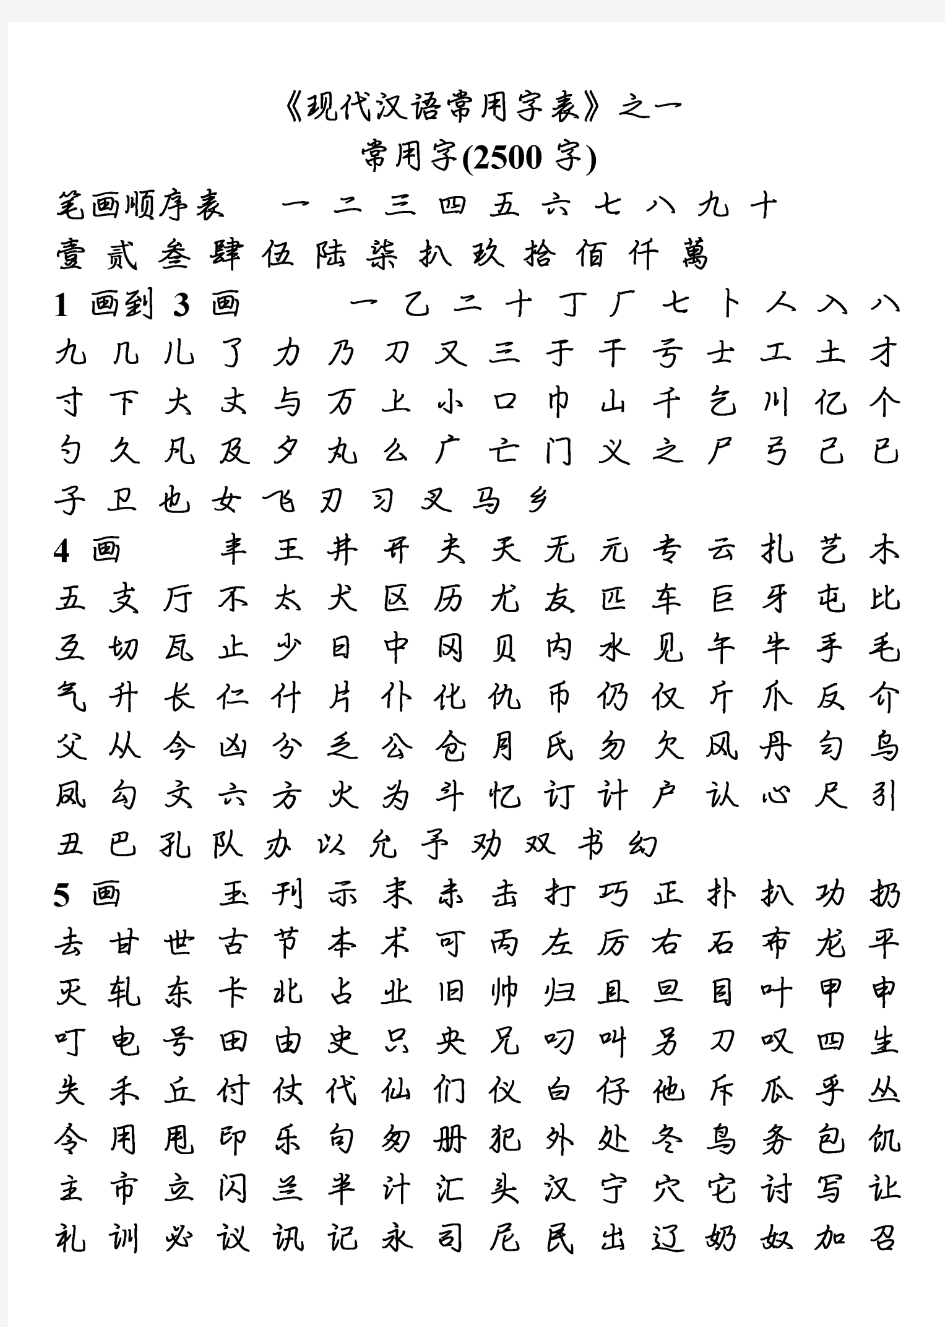 《现代汉语常用字表》之一
常用字(2500字)
笔画顺序表 一 二 三 四 五 六 七 八 九 十
壹 贰 叁 肆 伍 陆 柒 扒 玖 拾 佰 仟 萬
1 画到 3 画 一 乙 二 十 丁 厂 七 卜 人 入 八
九 几 儿 了 力 乃 刀 又 三 于 干 亏 士 工 土 才
寸 下 大 丈 与 万 上 小 口 巾 山 千 乞 川 亿 个
勺 久 凡 及 夕 丸 么 广 亡 门 义 之 尸 弓 己 已
子 卫 也 女 飞 刃 习 叉 马 乡
4 画 丰 王 井 开 夫 天 无 元 专 云 扎 艺 木
五 支 厅 不 太 犬 区 历 尤 友 匹 车 巨 牙 屯 比
互 切 瓦 止 少 日 中 冈 贝 内 水 见 午 牛 手 毛
气 升 长 仁 什 片 仆 化 仇 币 仍 仅 斤 爪 反 介
父 从 今 凶 分 乏 公 仓 月 氏 勿 欠 风 丹 匀 乌
凤 勾 文 六 方 火 为 斗 忆 订 计 户 认 心 尺 引
丑 巴 孔 队 办 以 允 予 劝 双 书 幻
5 画 玉 刊 示 末 未 击 打 巧 正 扑 扒 功 扔
去 甘 世 古 节 本 术 可 丙 左 厉 右 石 布 龙 平
灭 轧 东 卡 北 占 业 旧 帅 归 且 旦 目 叶 甲 申
叮 电 号 田 由 史 只 央 兄 叼 叫 另 刀 叹 四 生
失 禾 丘 付 仗 代 仙 们 仪 白 仔 他 斥 瓜 乎 丛
令 用 甩 印 乐 句 匆 册 犯 外 处 冬 鸟 务 包 饥
主 市 立 闪 兰 半 汁 汇 头 汉 宁 穴 它 讨 写 让
礼 训 必 议 讯 记 永 司 尼 民 出 辽 奶 奴 加 召